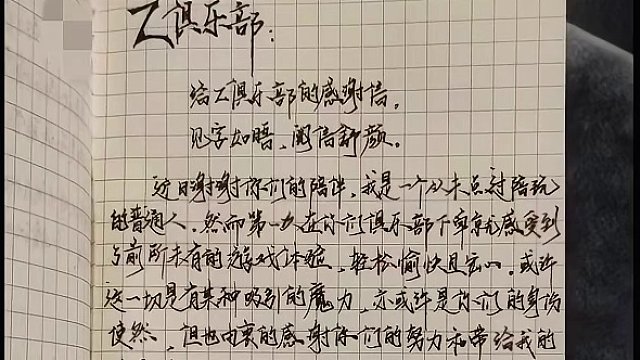 Z俱乐部:
给Z俱乐部的感谢信。
见字如晤,阅信舒颜。
近日谢谢你们的陪伴,我是一个从未点过陪玩
的普通人。然而第一次在你们俱乐部下单就感受到
与前所未有的游戏体验,轻松愉快且安心。或许
这一切是有某种吸引的魔力,亦或许是你们的身份
使然,但也由衷的感谢你们的努力和带给我的